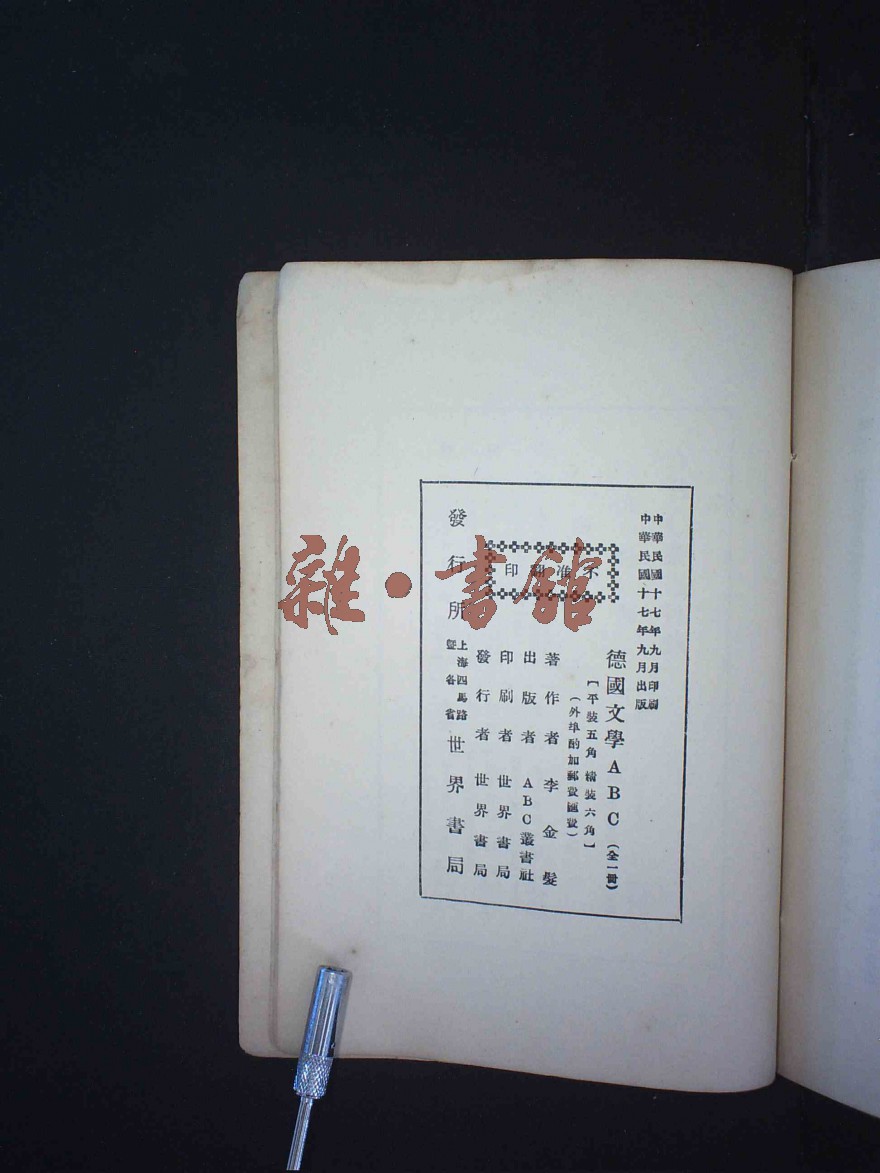 中華民國十七年九月印刷
中華民國十七年九月出版
德國文學ABC（全一冊）
【平裝五角 精裝六角】
（外埠酌加郵費匯費）
不准翻印
著作者 李金髮
出版者 ABC叢書社
印刷者 世界書局
發行者 世界書局
發行所 上海四馬路暨各省 世界書局
雜·書館